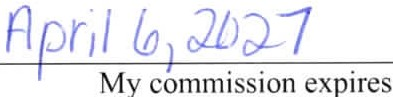 April 6, 2027
My commission expires